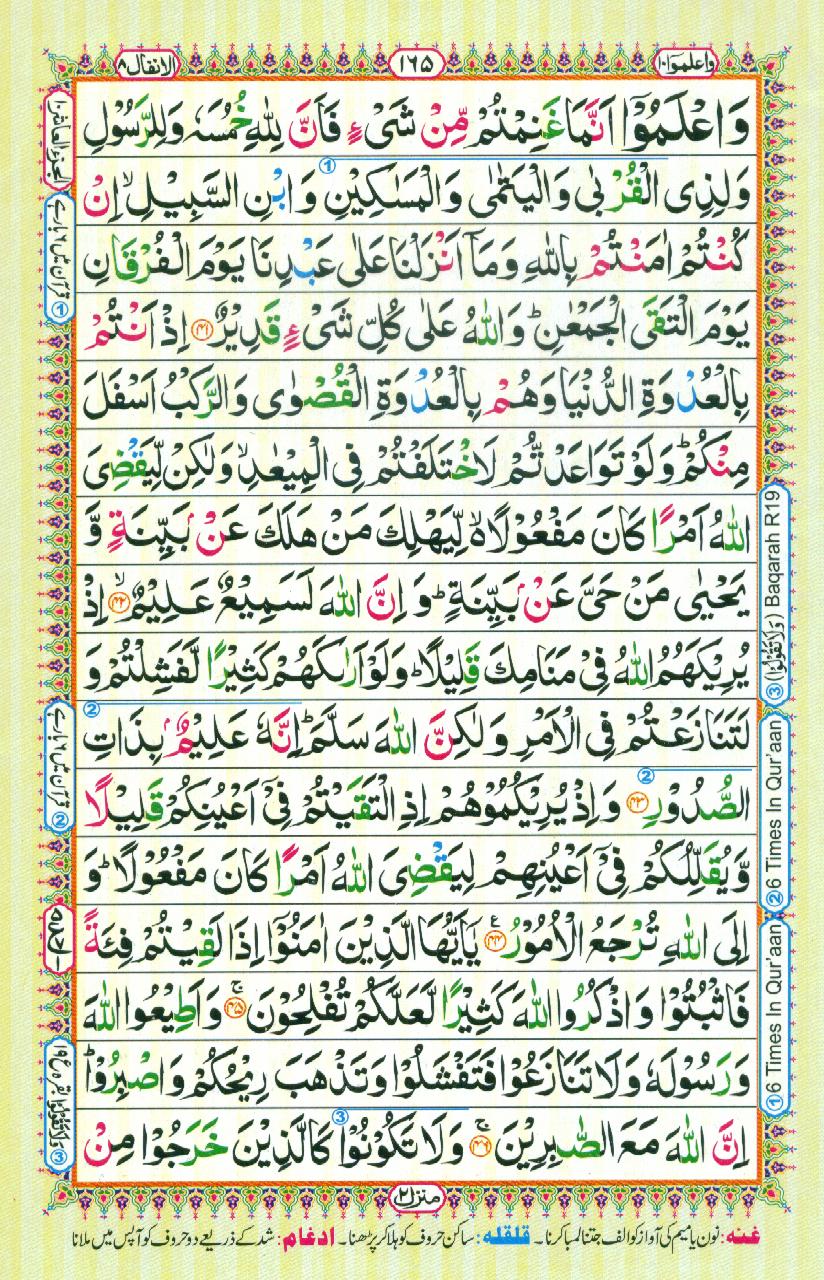 واعلموا ۱۰
۱۶۵
الانفال ۸
وَاعْلَمُوْۤا اَنَّمَا غَنِمْتُمْ مِّنْ شَیْءٍ فَاَنَّ لِلّٰهِ خُمُسَهٗ وَلِلرَّسُوْلِ
وَلِذِی الْقُرْبٰی وَالْیَتٰمٰی وَالْمَسٰكِیْنِ وَابْنِ السَّبِیْلِ ۙ اِنْ
كُنْتُمْ اٰمَنْتُمْ بِاللّٰهِ وَمَاۤ اَنْزَلْنَا عَلٰی عَبْدِنَا یَوْمَ الْفُرْقَانِ
یَوْمَ الْتَقَی الْجَمْعٰنِ ؕ وَاللّٰهُ عَلٰی كُلِّ شَیْءٍ قَدِیْرٌ ﴿۴۱﴾ اِذْ اَنْتُمْ
بِالْعُدْوَةِ الدُّنْیَا وَهُمْ بِالْعُدْوَةِ الْقُصْوٰی وَالرَّكْبُ اَسْفَلَ
مِنْكُمْ ؕ وَلَوْ تَوَاعَدْتُّمْ لَاخْتَلَفْتُمْ فِی الْمِیْعٰدِ ۙ وَلٰكِنْ لِّیَقْضِیَ
اللّٰهُ اَمْرًا كَانَ مَفْعُوْلًا ۙ۬ لِّیَهْلِكَ مَنْ هَلَكَ عَنْۢ بَیِّنَةٍ وَّ
یَحْیٰی مَنْ حَیَّ عَنْۢ بَیِّنَةٍ ؕ وَ اِنَّ اللّٰهَ لَسَمِیْعٌ عَلِیْمٌ ﴿ۙ۴۲﴾ اِذْ
یُرِیْكَهُمُ اللّٰهُ فِیْ مَنَامِكَ قَلِیْلًا ؕ وَلَوْ اَرٰىكَهُمْ كَثِیْرًا لَّفَشِلْتُمْ وَ
لَتَنَازَعْتُمْ فِی الْاَمْرِ وَلٰكِنَّ اللّٰهَ سَلَّمَ ؕ اِنَّهٗ عَلِیْمٌۢ بِذَاتِ
الصُّدُوْرِ ﴿۴۳﴾ وَاِذْ یُرِیْكُمُوْهُمْ اِذِ الْتَقَیْتُمْ فِیْۤ اَعْیُنِكُمْ قَلِیْلًا
وَّیُقَلِّلُكُمْ فِیْۤ اَعْیُنِهِمْ لِیَقْضِیَ اللّٰهُ اَمْرًا كَانَ مَفْعُوْلًا ؕ وَ
اِلَی اللّٰهِ تُرْجَعُ الْاُمُوْرُ ﴿۴۴﴾ یٰۤاَیُّهَا الَّذِیْنَ اٰمَنُوْۤا اِذَا لَقِیْتُمْ فِئَةً
فَاثْبُتُوْا وَاذْكُرُوا اللّٰهَ كَثِیْرًا لَّعَلَّكُمْ تُفْلِحُوْنَ ﴿ۚ۴۵﴾ وَاَطِیْعُوا اللّٰهَ
وَرَسُوْلَهٗ وَلَا تَنَازَعُوْا فَتَفْشَلُوْا وَتَذْهَبَ رِیْحُكُمْ وَاصْبِرُوْا ؕ
اِنَّ اللّٰهَ مَعَ الصّٰبِرِیْنَ ﴿ۚ۴۶﴾ وَلَا تَكُوْنُوْا كَالَّذِیْنَ خَرَجُوْا مِنْ
منزل ۲
غنه: نون یا میم کی آواز کو الف جتنا لمبا کرنا۔ قلقله: ساکن حروف کو ہلا کر پڑھنا۔ ادغام: شد کے ذریعے دو حروف کو آپس میں ملانا
الجزء العاشر ۱۰
قرآن میں ۶ بار ہے ①
قرآن میں ۶ بار ہے ②
③ (وَلَا تَقُوْلُوْا) Baqarah R19
② 6 Times In Qur'aan
① 6 Times In Qur'aan